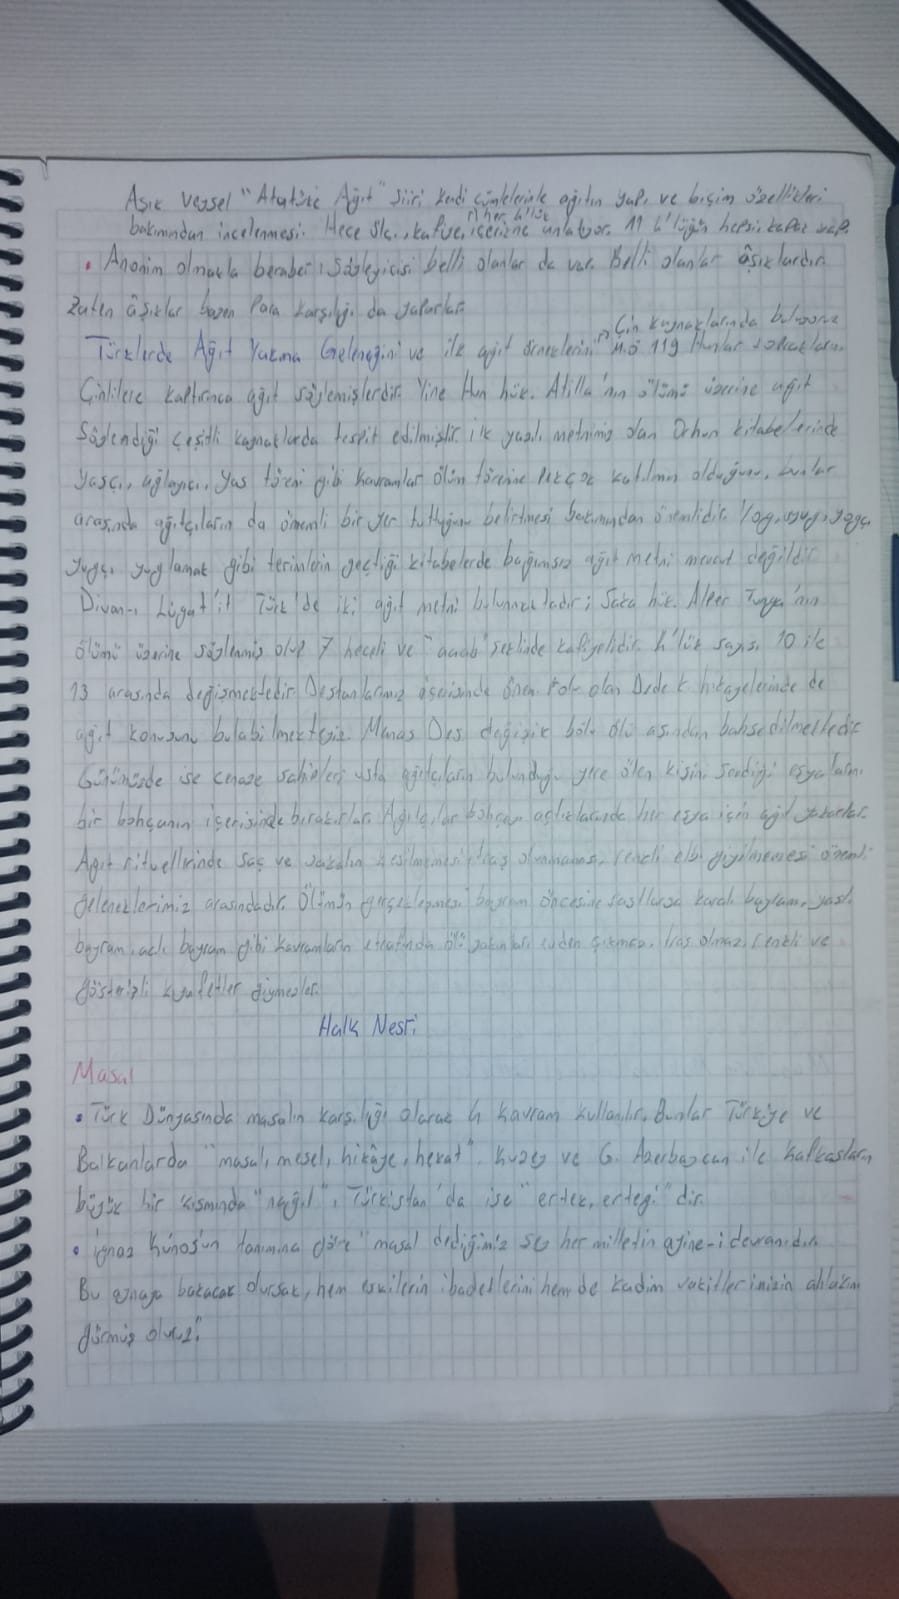 Aşık Veysel "Atatürk Ağıt" şiiri kendi cümlelerinle ağıtın yapı ve biçim özellikleri
bakımından incelenmesi. Hece ölç., kafiye, içeriğine anlatıyor. 11 4'lüğün hepsi
her 4'lük
• Anonim olmakla beraber, söyleyicisi belli olanlar da var. Belli olanlar âşıklardır.
Zaten âşıklar bazen para karşılığı da yaparlar.
Çin kaynaklarında buluyoruz
Türklerde Ağıt Yakma Geleneğini ve ilk ağıt örneklerini M.Ö 119 Hunlar topraklarını
Çinlilere kaptırınca ağıt söylemişlerdir. Yine Hun hük. Atilla'nın ölümü üzerine ağıt
söylendiği çeşitli kaynaklarda tespit edilmiştir. ilk yazılı metnimiz olan Orhun kitabelerinde
yasçı, ağlayıcı, yas töreni gibi kavramlar ölüm törenine pekçok katılımın olduğunu, bunlar
arasında ağıtçıların da önemli bir yer tuttuğunu belirtmesi bakımından önemlidir. Yog, uyug, yogçı
yugçı, yuglamak gibi terimlerin geçtiği kitabelerde bağımsız ağıt metni mevcut değildir.
Divan-ı Lügat'it Türk'de iki ağıt metni bulunmaktadır; Saka hük. Alper Tunga'nın
ölümü üzerine söylenmiş olup 7 heceli ve "aaab" şeklinde kafiyelidir. 4'lük sayısı 10 ile
13 arasında değişmektedir. Destanlarımız içerisinde önem. olan Dede K. hikayelerinde de
ağıt konusunu bulabilmekteyiz. Manas Des. değişik böl. ölü aşından bahsedilmektedir.
Günümüzde ise cenaze sahipleri usta ağıtçıların bulunduğu yere ölen kişinin sevdiği eşyalarını
bir bohçanın içerisinde bırakırlar. Ağıtçılar bohçayı açtıklarında her eşya için ağıt yakarlar.
Ağıt rituellrinde saç ve sakalın kesilmemesi, traş olunmaması, renkli elb. giyilmemesi önemli
geleneklerimiz arasındadır. Ölümün gerçekleşmesi bayram öncesine rastlarsa karalı bayram, yaslı
bayram, acılı bayram gibi kavramların etrafında ölü yakınları evden çıkmaz, traş olmaz, renkli ve
gösterişli kıyafetler giymezler.
Halk Nesri
Masal
• Türk Dünyasında masalın karşılığı olarak 4 kavram kullanılır. Bunlar Türkiye ve
Balkanlarda "masal, mesel, hikâye, hekat". Kuzey ve G. Azerbaycan ile Kafkasların
büyük bir kısmında "nağıl", Türkistan'da ise "ertek, ertegi" dir.
• İgnaz Kúnos'un tanımına göre "masal dediğimiz şey her milletin ayine-i devranıdır.
Bu aynaya bakacak olursak, hem eskilerin ibadetlerini hem de kadim vakitlerimizin ahlakını
görmüş oluruz."